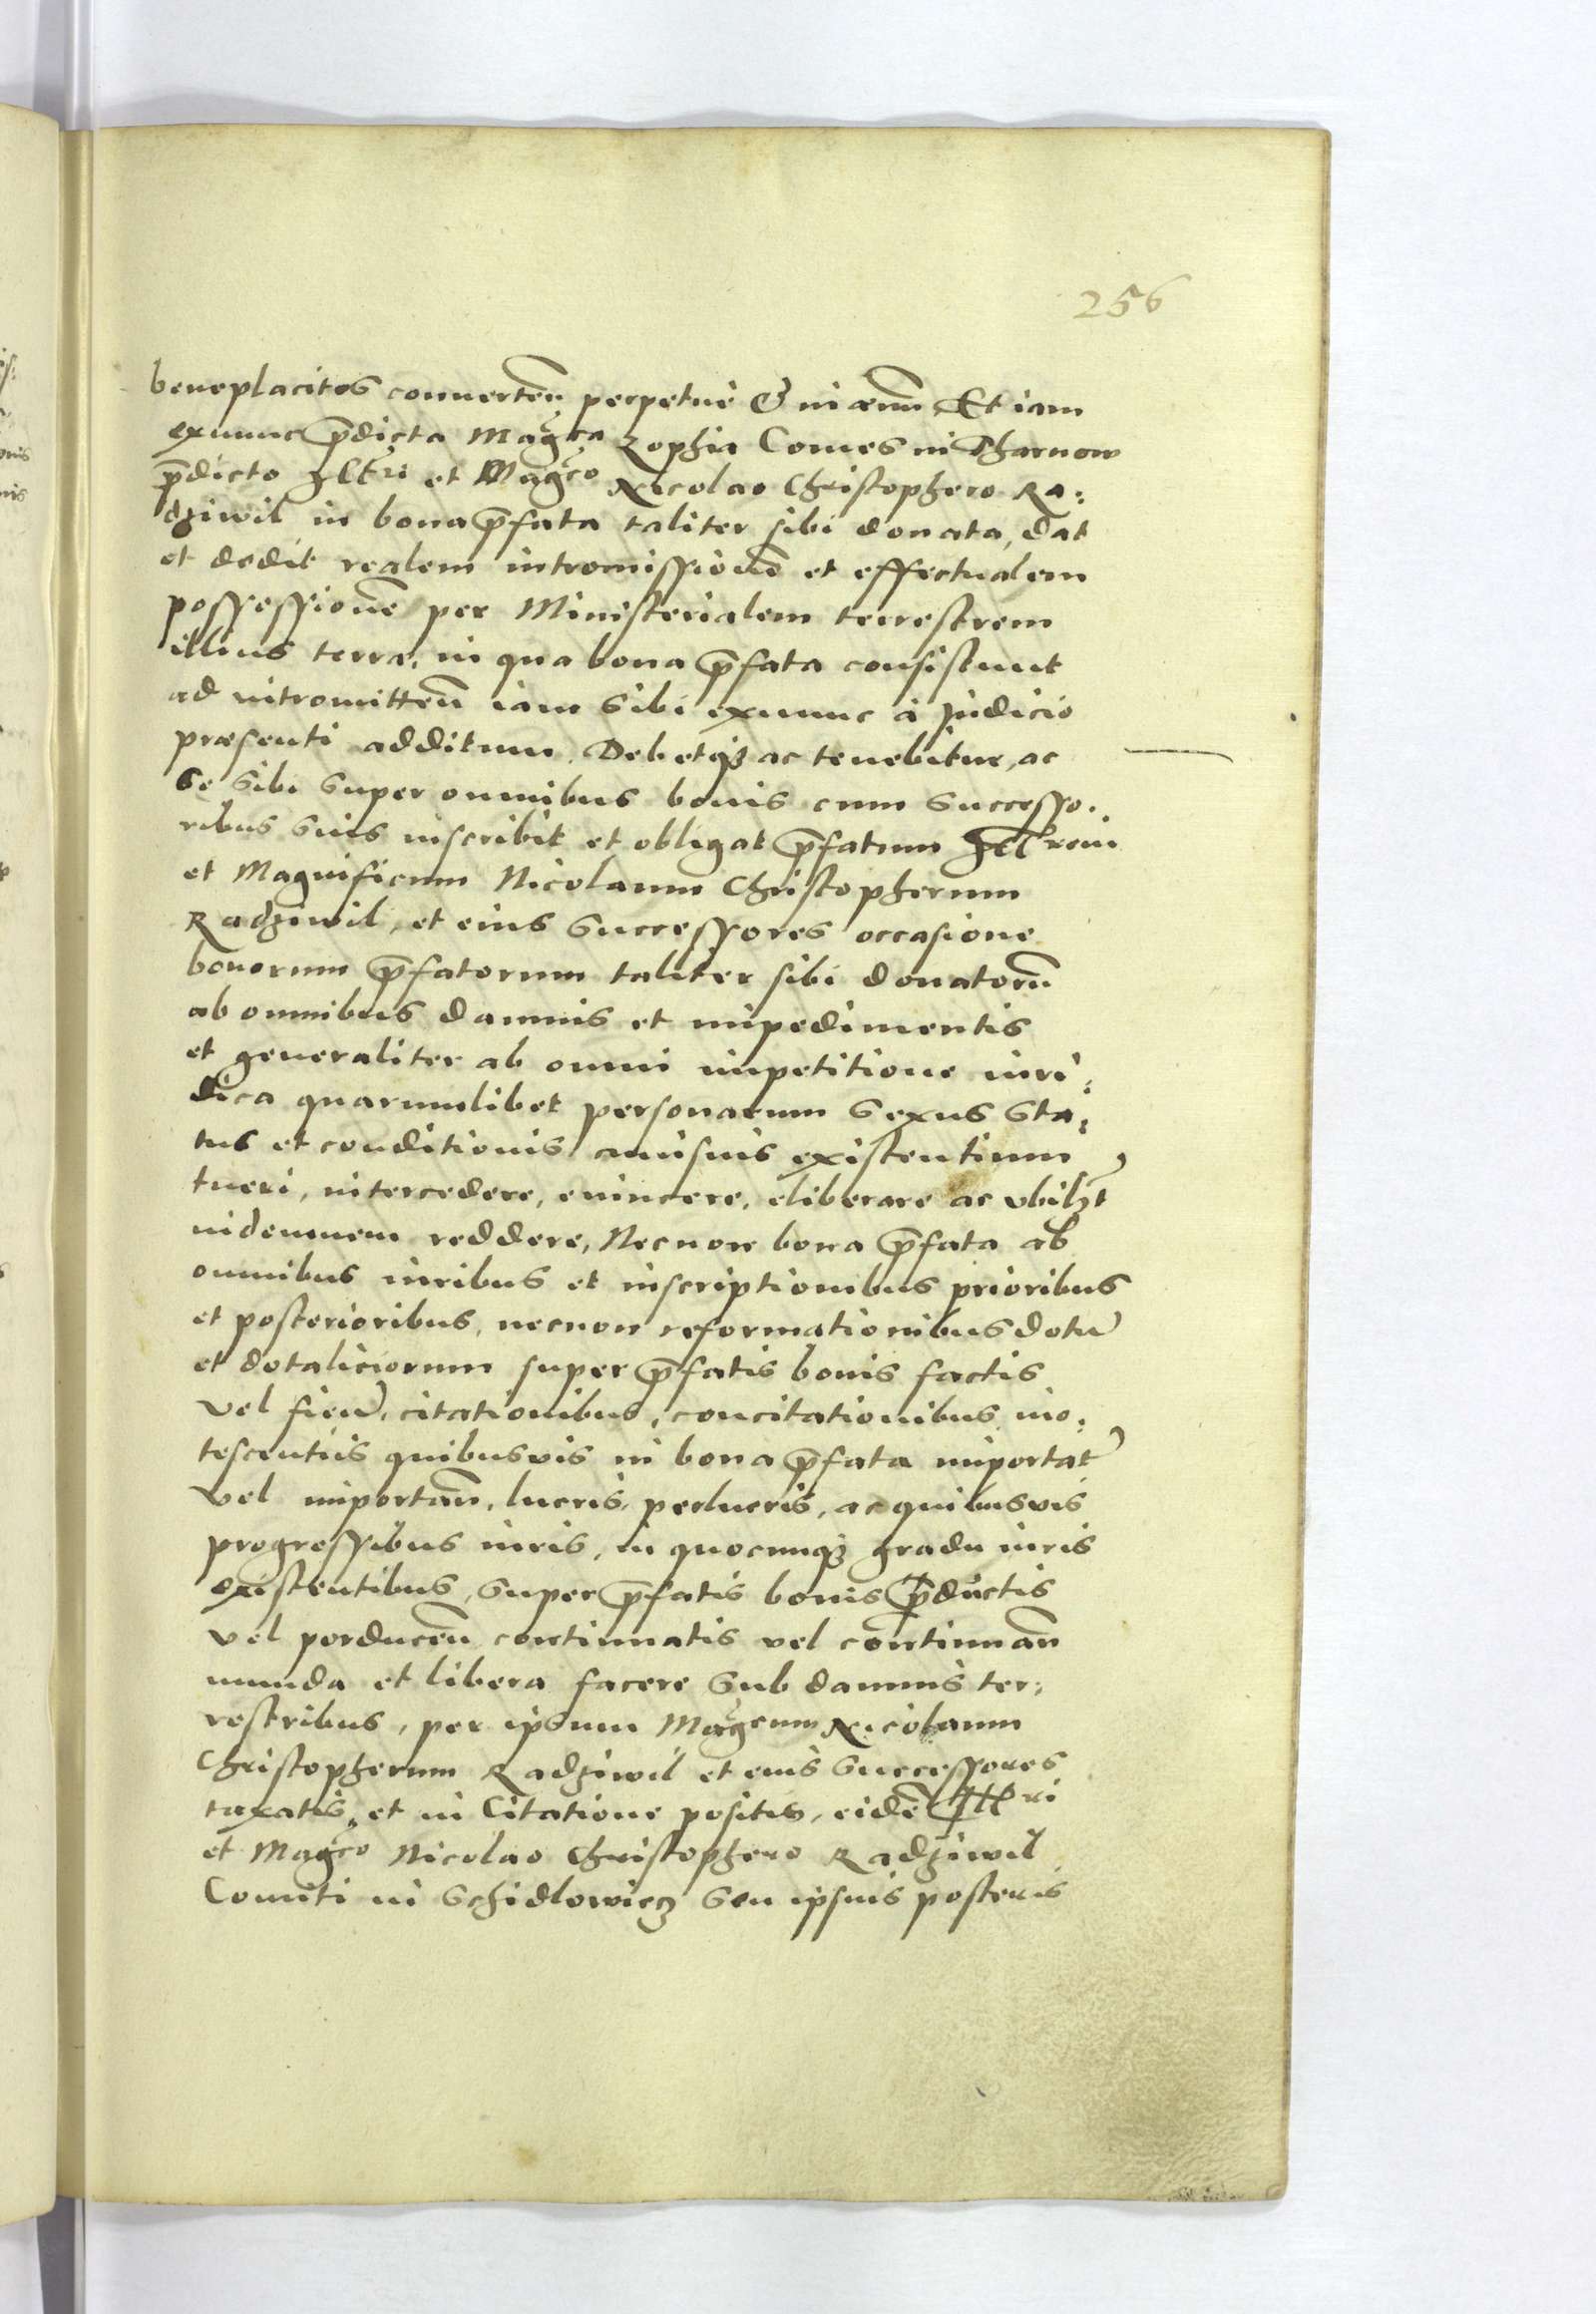 256
beneplacitos conuerteñ perpetue & in æuum Et iam
exnunc p̃dicta Mag̃ca Zophia Comes in Tharnow
p̃dicto Illtri et Mag̃co Nicolao Christophero Ra:
dziwil in bona p̃fata taliter sibi donata, dat
et dedit realem intromissionẽ et effectualem
possessionẽ per Ministerialem terrestrem
illius terræ, in qua bona p̃fata consistunt
ad intromitteñ iam sibi exnunc à Judicio
præsenti additum. Debetqȝ ac tenebitur, ac
se sibi super omnibus bonis cum successo.
ribus suis inscribit et obligat p̃fatum Illtrem
et Magnificum Nicolaum Christopherum
Radziwil, et eius successores occasione
bonorum p̃fatorum taliter sibi donatorũ
ab omnibus damnis et impedimentis
et generaliter ab omni impetitione iuri:
dica quarumlibet personarum sexus sta:
tus et conditionis cuiusuis existentium,
tueri, intercedere, euincere, eliberare ac vbilȝt
indemnem reddere, Necnon bona p̃fata ab
omnibus iuribus et inscriptionibus prioribus
et posterioribus, necnon reformationibus dotiũ
et dotaliciorum super p̃fatis bonis factis
vel fieñ, citationibus, concitationibus, ino:
tescentiis quibusvis in bona p̃fata importat̃
vel importañ, lucris, perlucris, ac quibusvis
progressibus iuris, in quocunqȝ gradu iuris
existentibus, super p̃fatis bonis p̃ductis
vel perduceñ continuatis vel continuañ
munda et libera facere sub damnis ter:
restribus, per ipsum Mag̃cum Nicolaum
Christopherum Radziwil et eius successores
taxatis, et in Citatione positis, eidẽ Illtri
et Mag̃co Nicolao Christophero Radziwil
Comiti in Schidlowiecz seu ipsius posteris